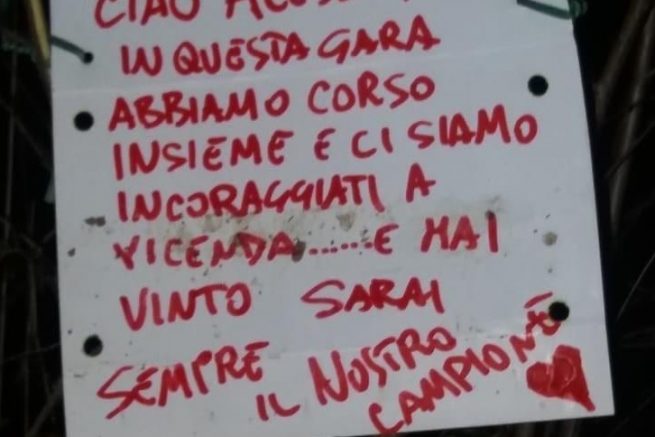 CIAO
IN QUESTA GARA
ABBIAMO CORSO
INSIEME E CI SIAMO
INCORAGGIATI A
VICENDA.......E HAI
VINTO SARAI
SEMPRE IL NOSTRO
CAMPIONE